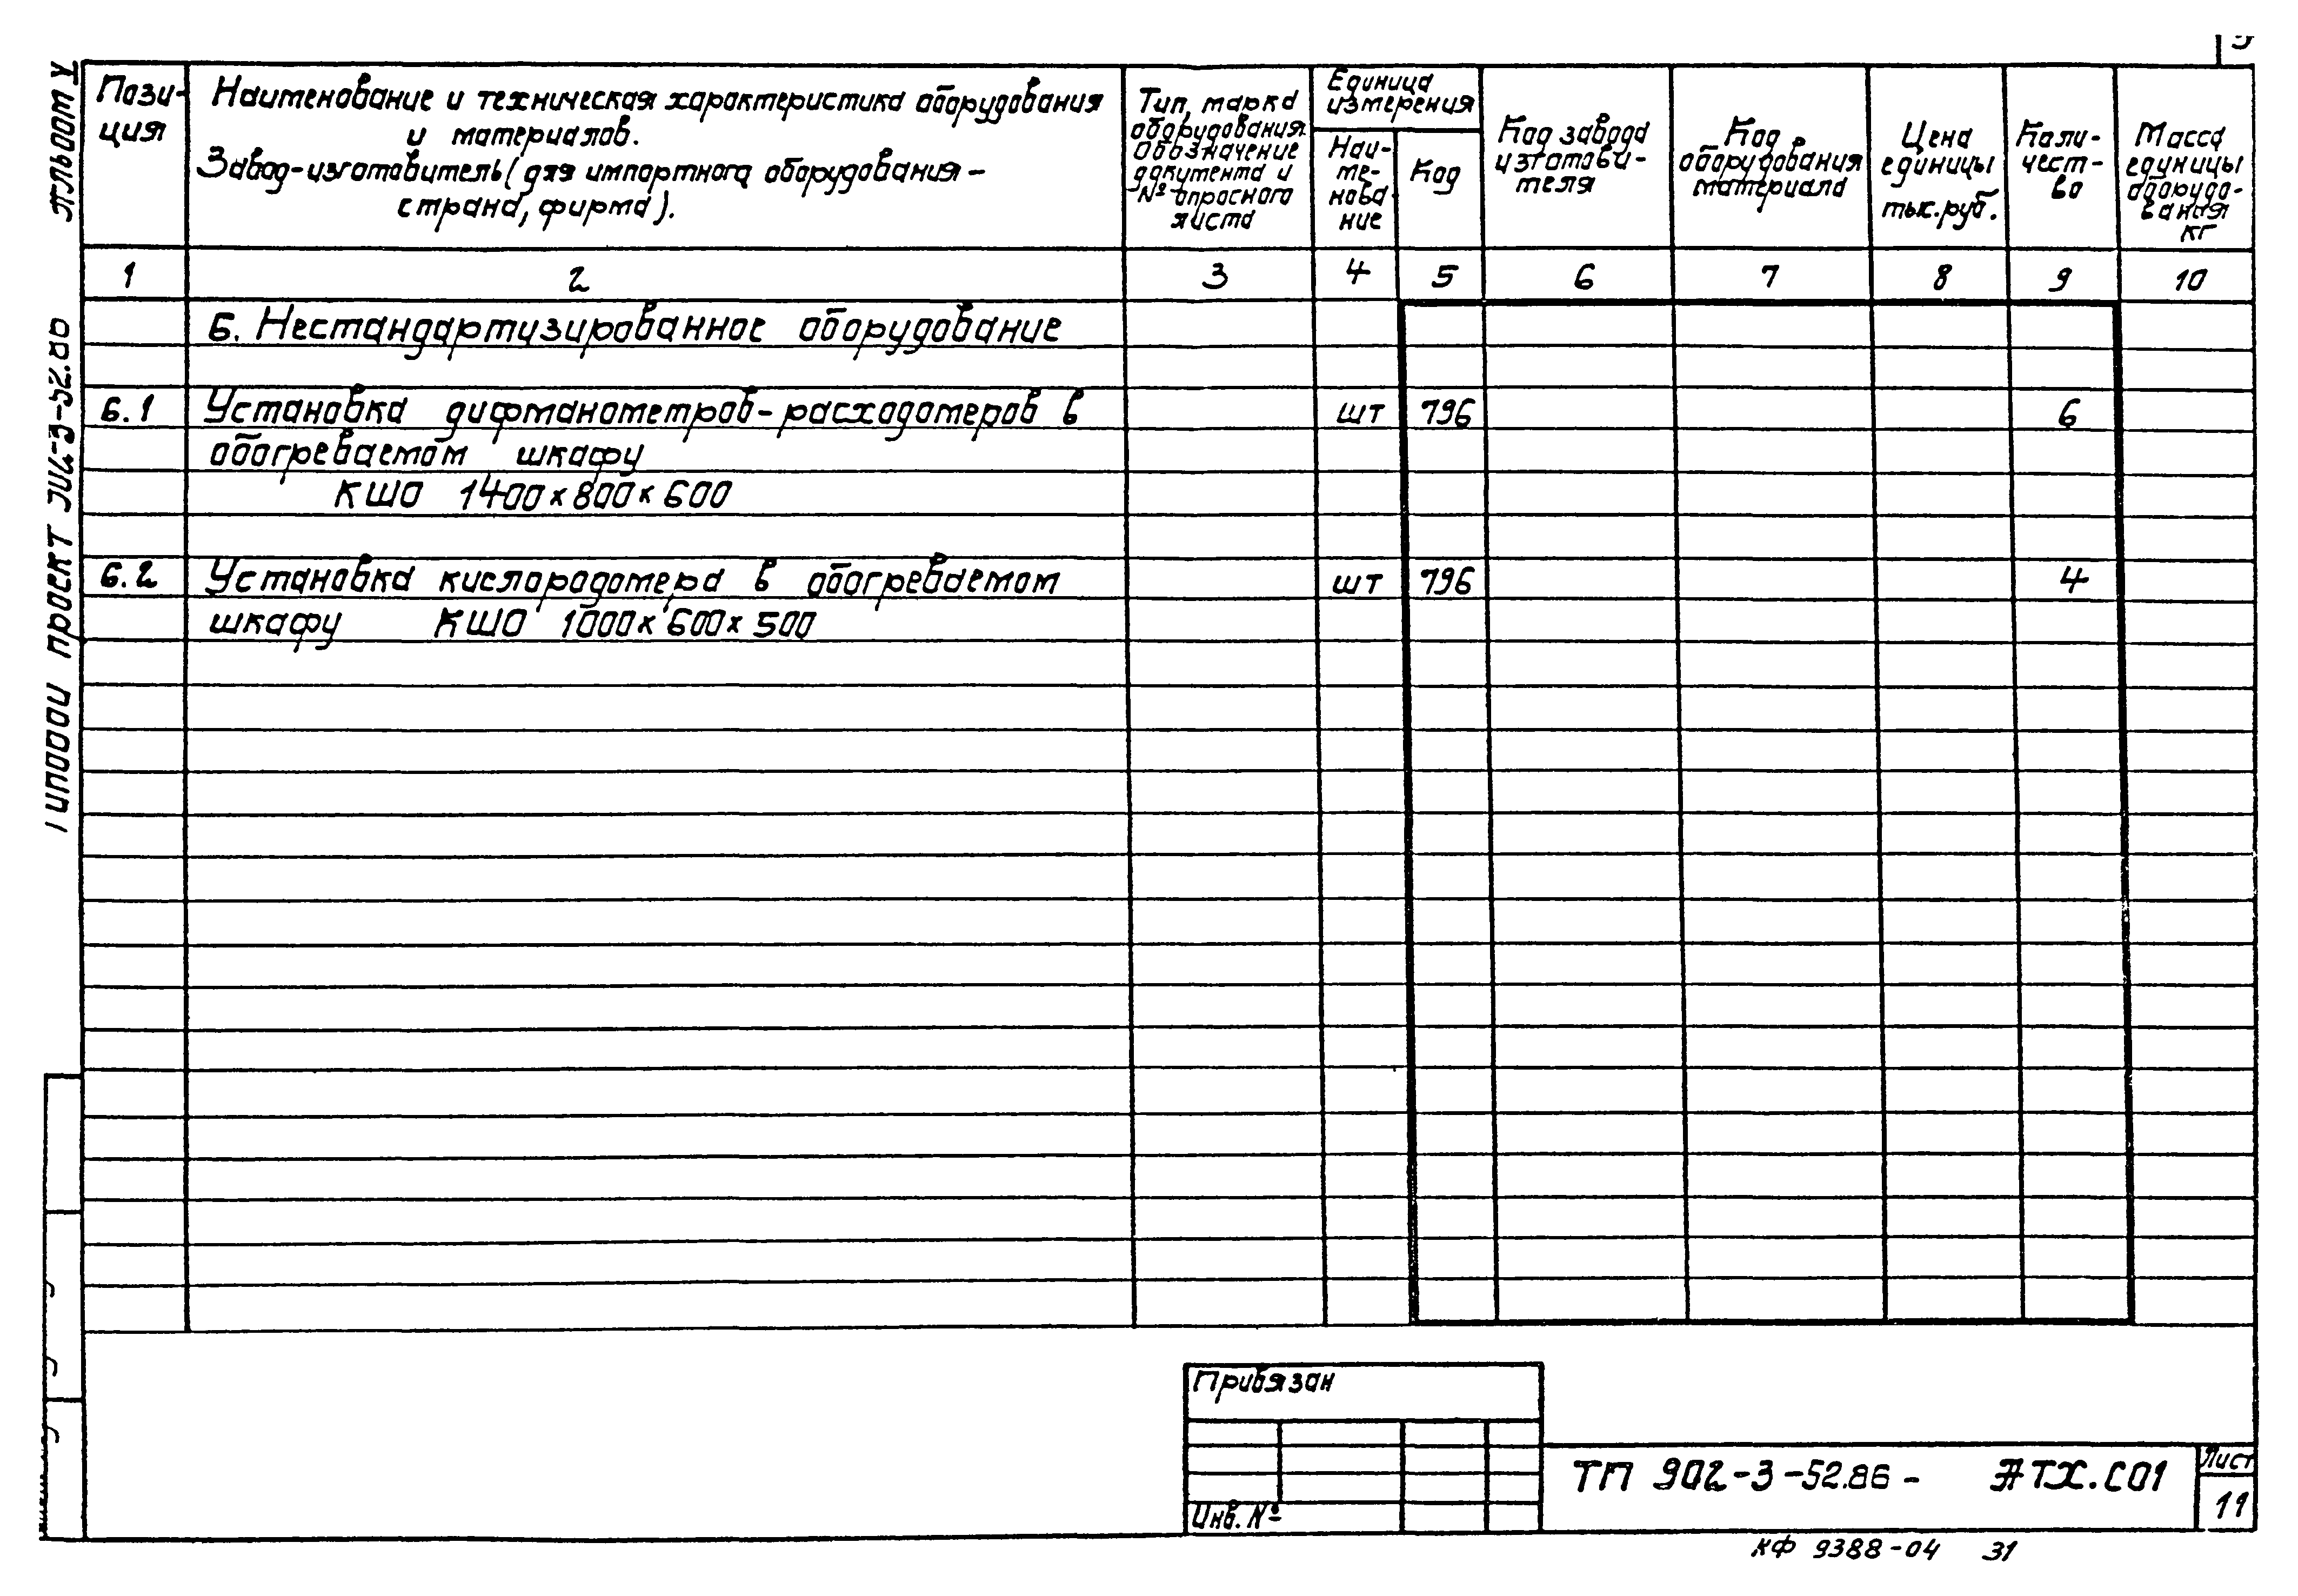 Альбом V
Типовой проект 902-3-52.86
Пози-
ция
Наименование и техническая характеристика оборудования
и материалов.
Завод-изготовитель (для импортного оборудования -
страна, фирма).
Тип, марка
оборудования.
Обозначение
документа и
№ опросного
листа
Единица
измерения
Наи-
ме-
нова-
ние
Код
Код завода
изготови-
теля
Код
оборудования
материала
Цена
единицы
тыс.руб.
Коли-
чест-
во
Масса
единицы
оборудо-
вания
кг
1 2 3 4 5 6 7 8 9 10
6. Нестандартизированное оборудование
6.1 Установка дифманометров-расходомеров в шт 796 6
обогреваемом шкафу
КШО 1400х800х600
6.2 Установка кислородомера в обогреваемом шт 796 4
шкафу КШО 1000х600х500
Привязан
Инв. №
ТП 902-3-52.86- АТХ.СО1
Лист
11
КФ 9388-04 31